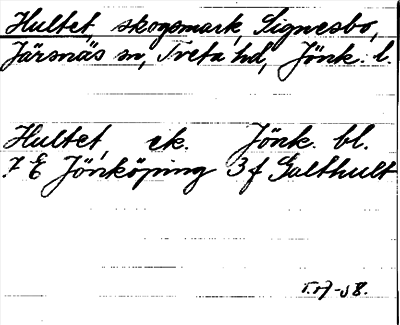 Hultet, skogsmark, Signesbo,
Järsnäs sn, Tveta hd, Jönk. l.
Hultet, ek. Jönk. bl.
7 E Jönköping 3 f Galthult